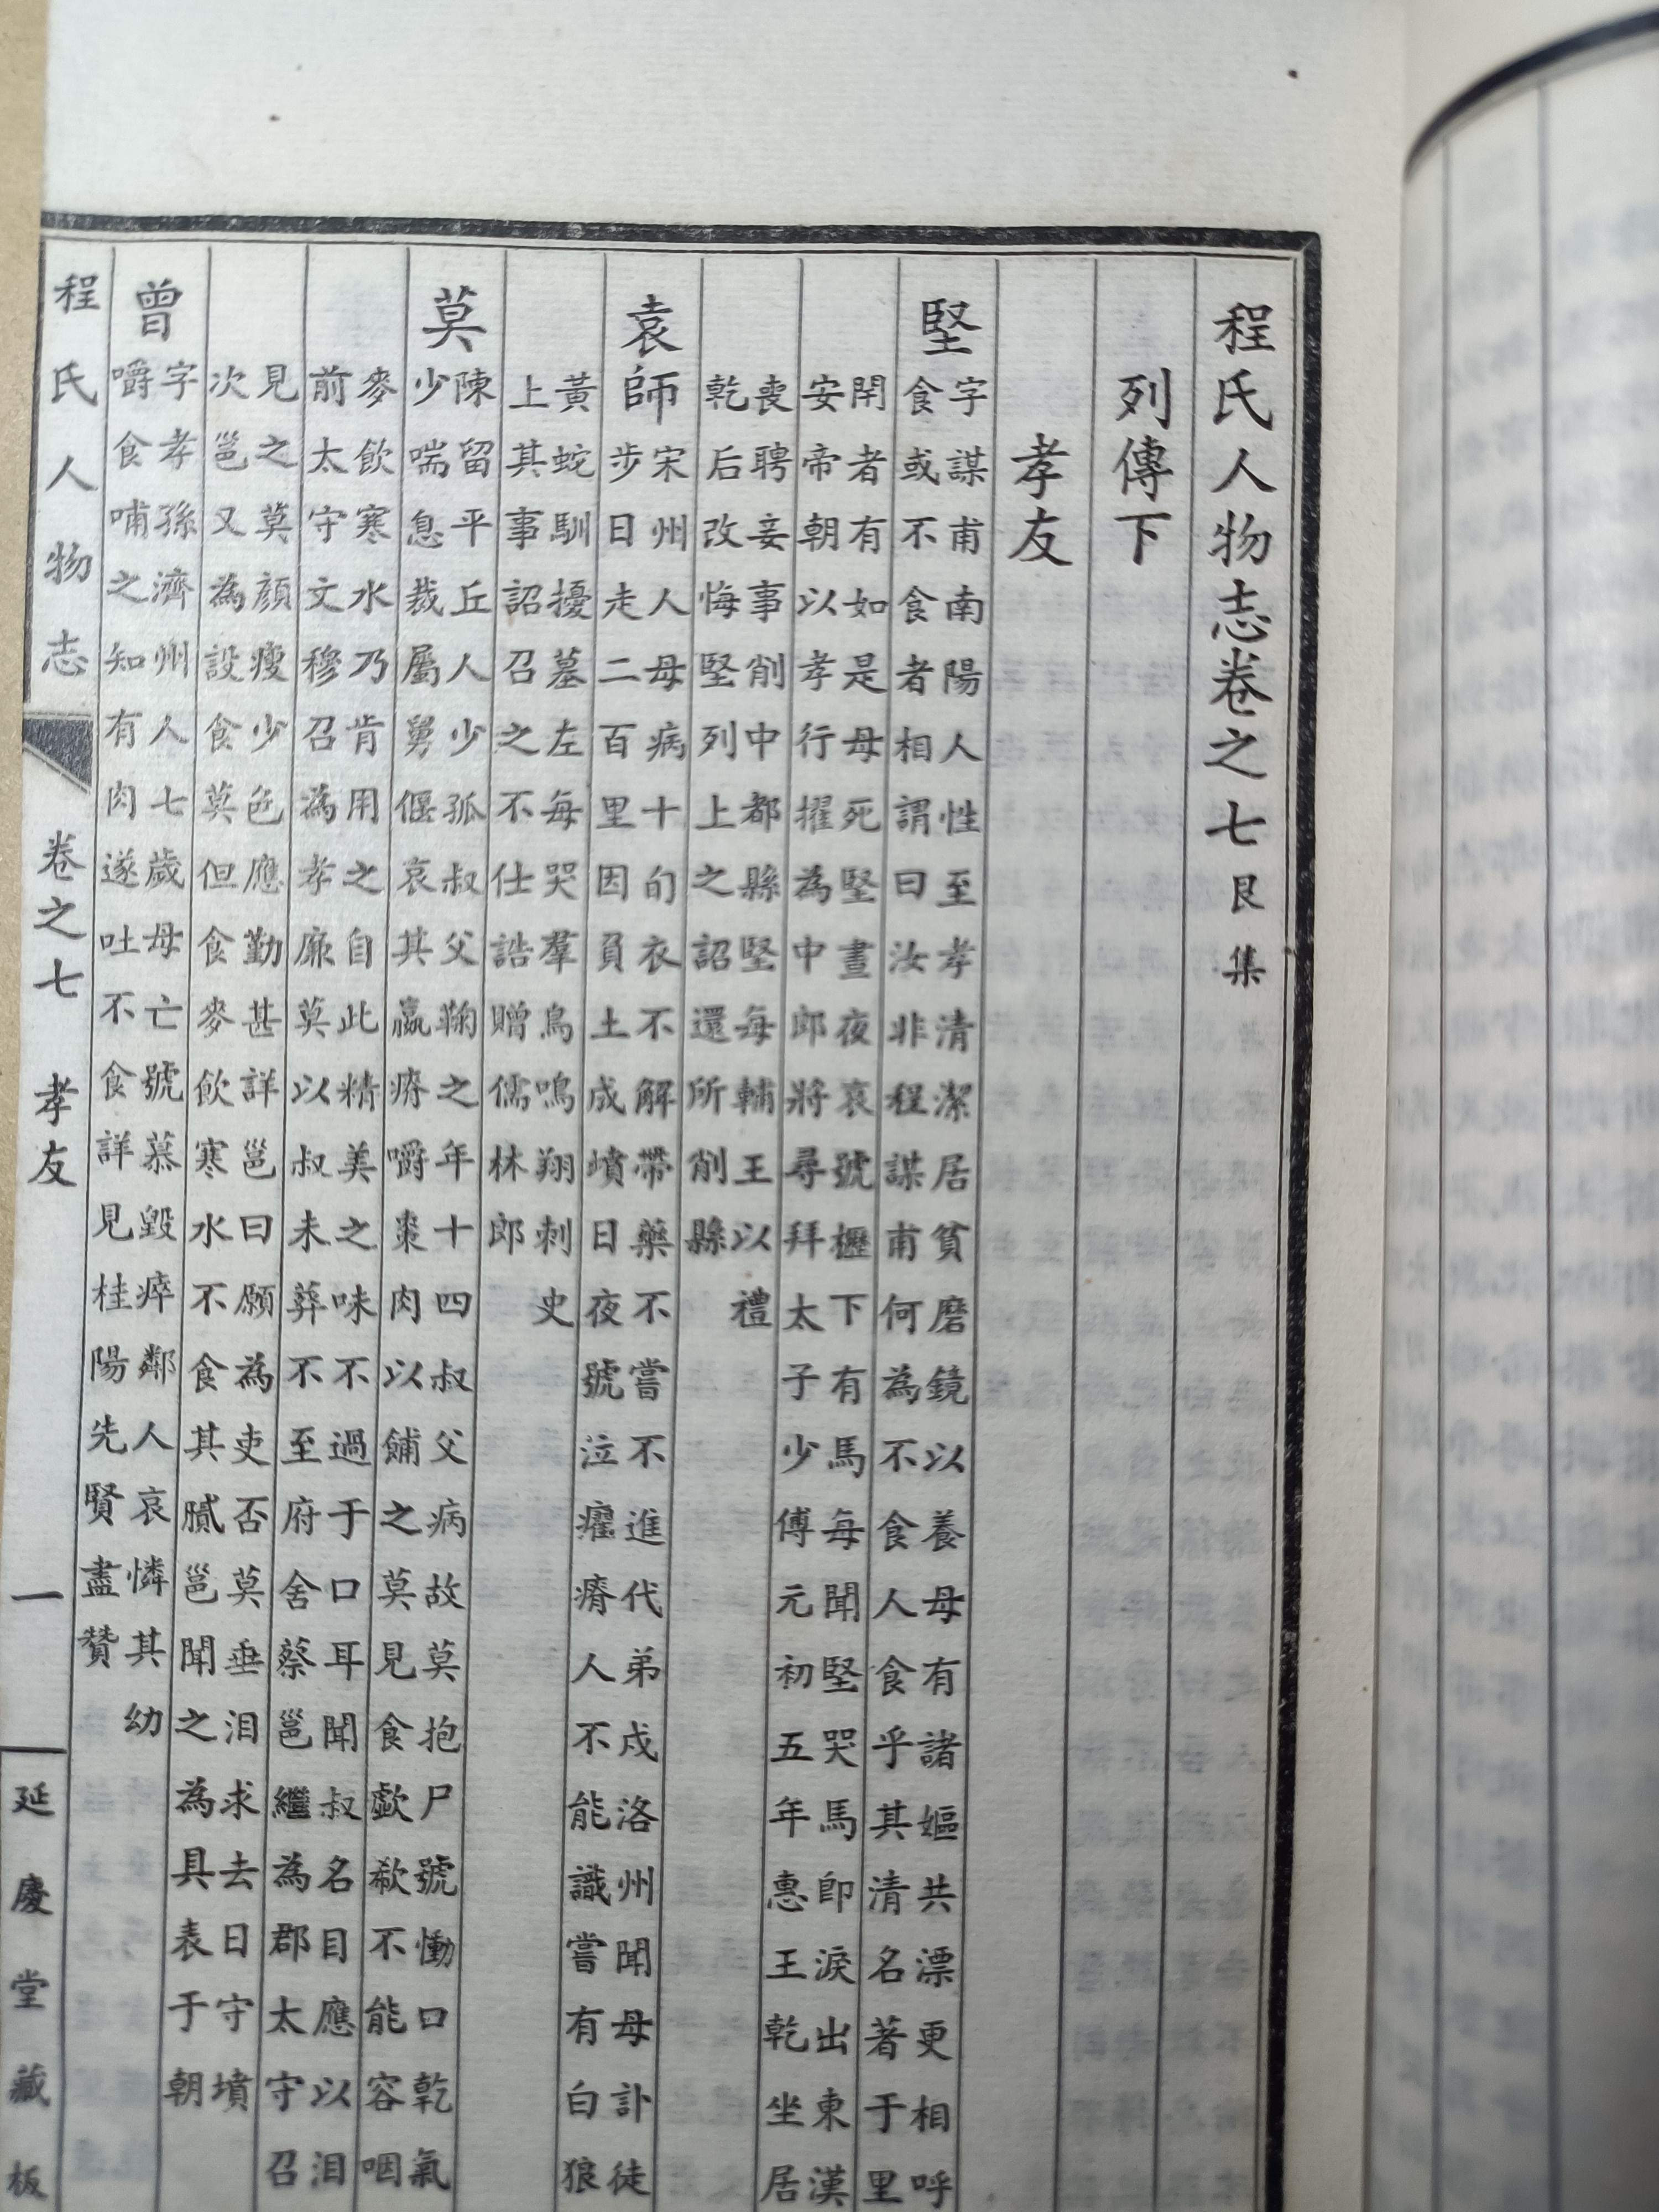 程氏人物志卷之七 艮集
列傳下
孝友
堅
字謀甫南陽人性至孝清潔居貧磨鏡以養母有諸嫗共漂更相呼
食或不食食者相謂曰汝非程謀甫何為不食人食乎其清名著于里
閈者有如是母死堅晝夜哀號櫪下有馬每聞堅哭馬即淚出東漢
安帝朝以孝行擢為中郎將尋拜太子少傅元初五年惠王乾坐居
喪聘妾事削中都縣堅每輔王以禮
乾后改悔堅列上之詔還所削縣
袁師
宋州人母病十旬衣不解帶藥不嘗不進代弟戍洛州聞母訃徒
步日走二百里因負土成墳日夜號泣癯瘠人不能識嘗有白狼
黃蛇馴擾墓左每哭羣鳥鳴翔刺史
上其事詔召之不仕誥贈儒林郎
莫
陳留平丘人少孤叔父鞠之年十四叔父病故莫抱尸號慟口乾氣
少喘息裁屬舅偃哀其羸瘠嚼棗肉以餔之莫見食歔欷不能容咽
麥飲寒水乃肯用之自此精美之味不過于口耳聞叔名目應以泪
前太守文穆召為孝廉莫以叔未葬不至府舍蔡邕繼為郡太守召
見之莫顏瘦少色應勤甚詳邕曰願為吏否莫垂泪求去日守墳
次邕又為設食莫但食麥飲寒水不食其膩邕聞之為具表于朝
曾
字孝孫濟州人七歲母亡號慕毀瘁鄰人哀憐其幼
嚼食哺之知有肉遂吐不食詳見桂陽先賢盡贊
程氏人物志 卷之七 孝友 一 延慶堂藏板